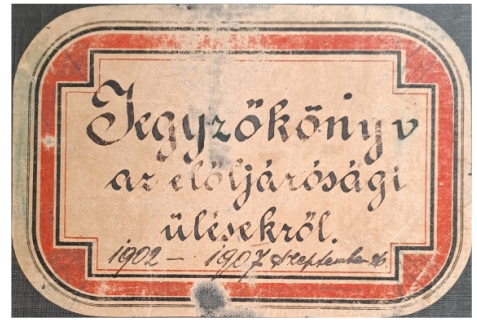 Jegyzőkönyv
az elöljárósági
ülésekről.
1902 – 1907 Szeptember 26.